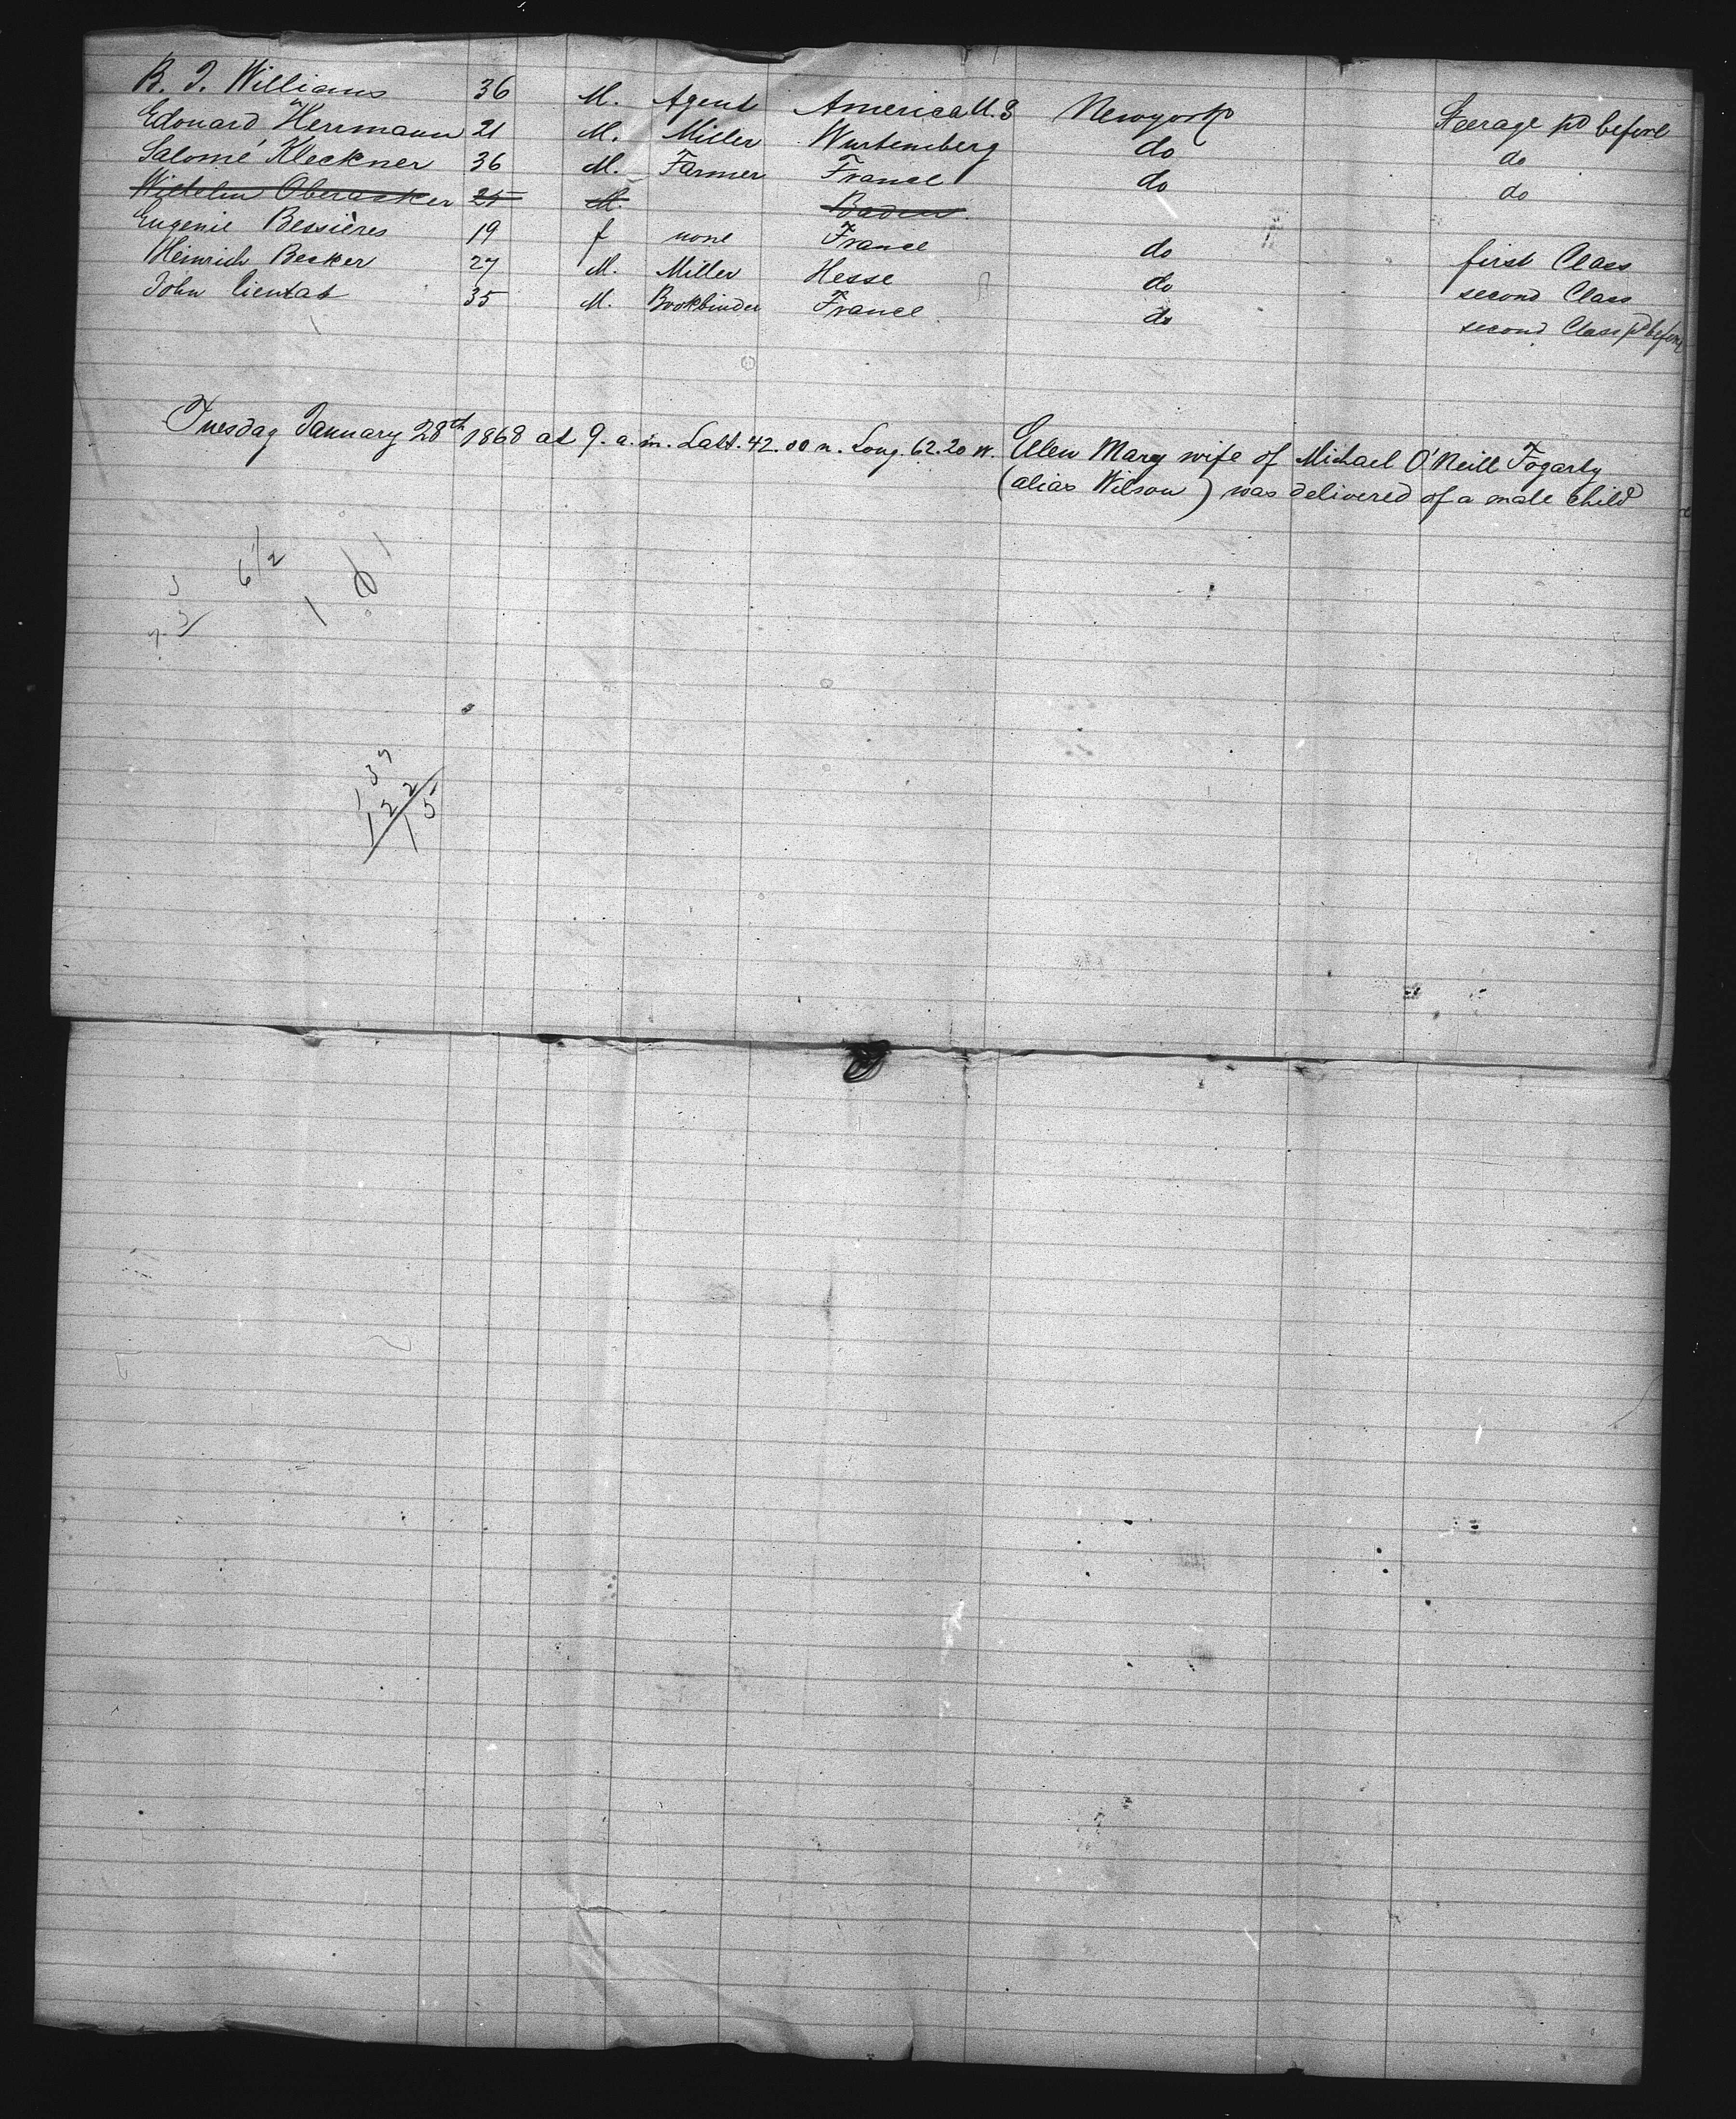 B. J. Williams 36 M. Agent America U.S Newyork Steerage pd before
Edouard Herrmann 21 M. Miller Wurtemberg do do
Salomé Kleckner 36 M. Farmer France do do
Wilhelm Oberacker 25 M. Baden
Eugenie Bessières 19 f none France do first Class
Heinrich Becker 27 M. Miller Hesse do second Class
John 35 M. Bookbinder France do second Class pd before
Tuesday January 28th 1868 at 9. a.m. Latt. 42.00 n. Long. 62.20 W. Ellen Mary wife of Michael O'Neill Fogarty
(alias Wilson) was delivered of a male child
6 1/2
137
122
15